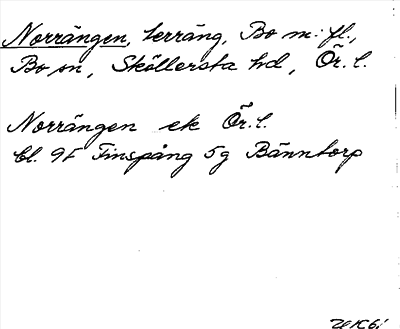 Norrängen, terräng, Bo m. fl.,
Bo sn, Sköllersta hd, Ör. l.
Norrängen ek Ör. l.
Bl. 9F Finspång 5g Bänntorp